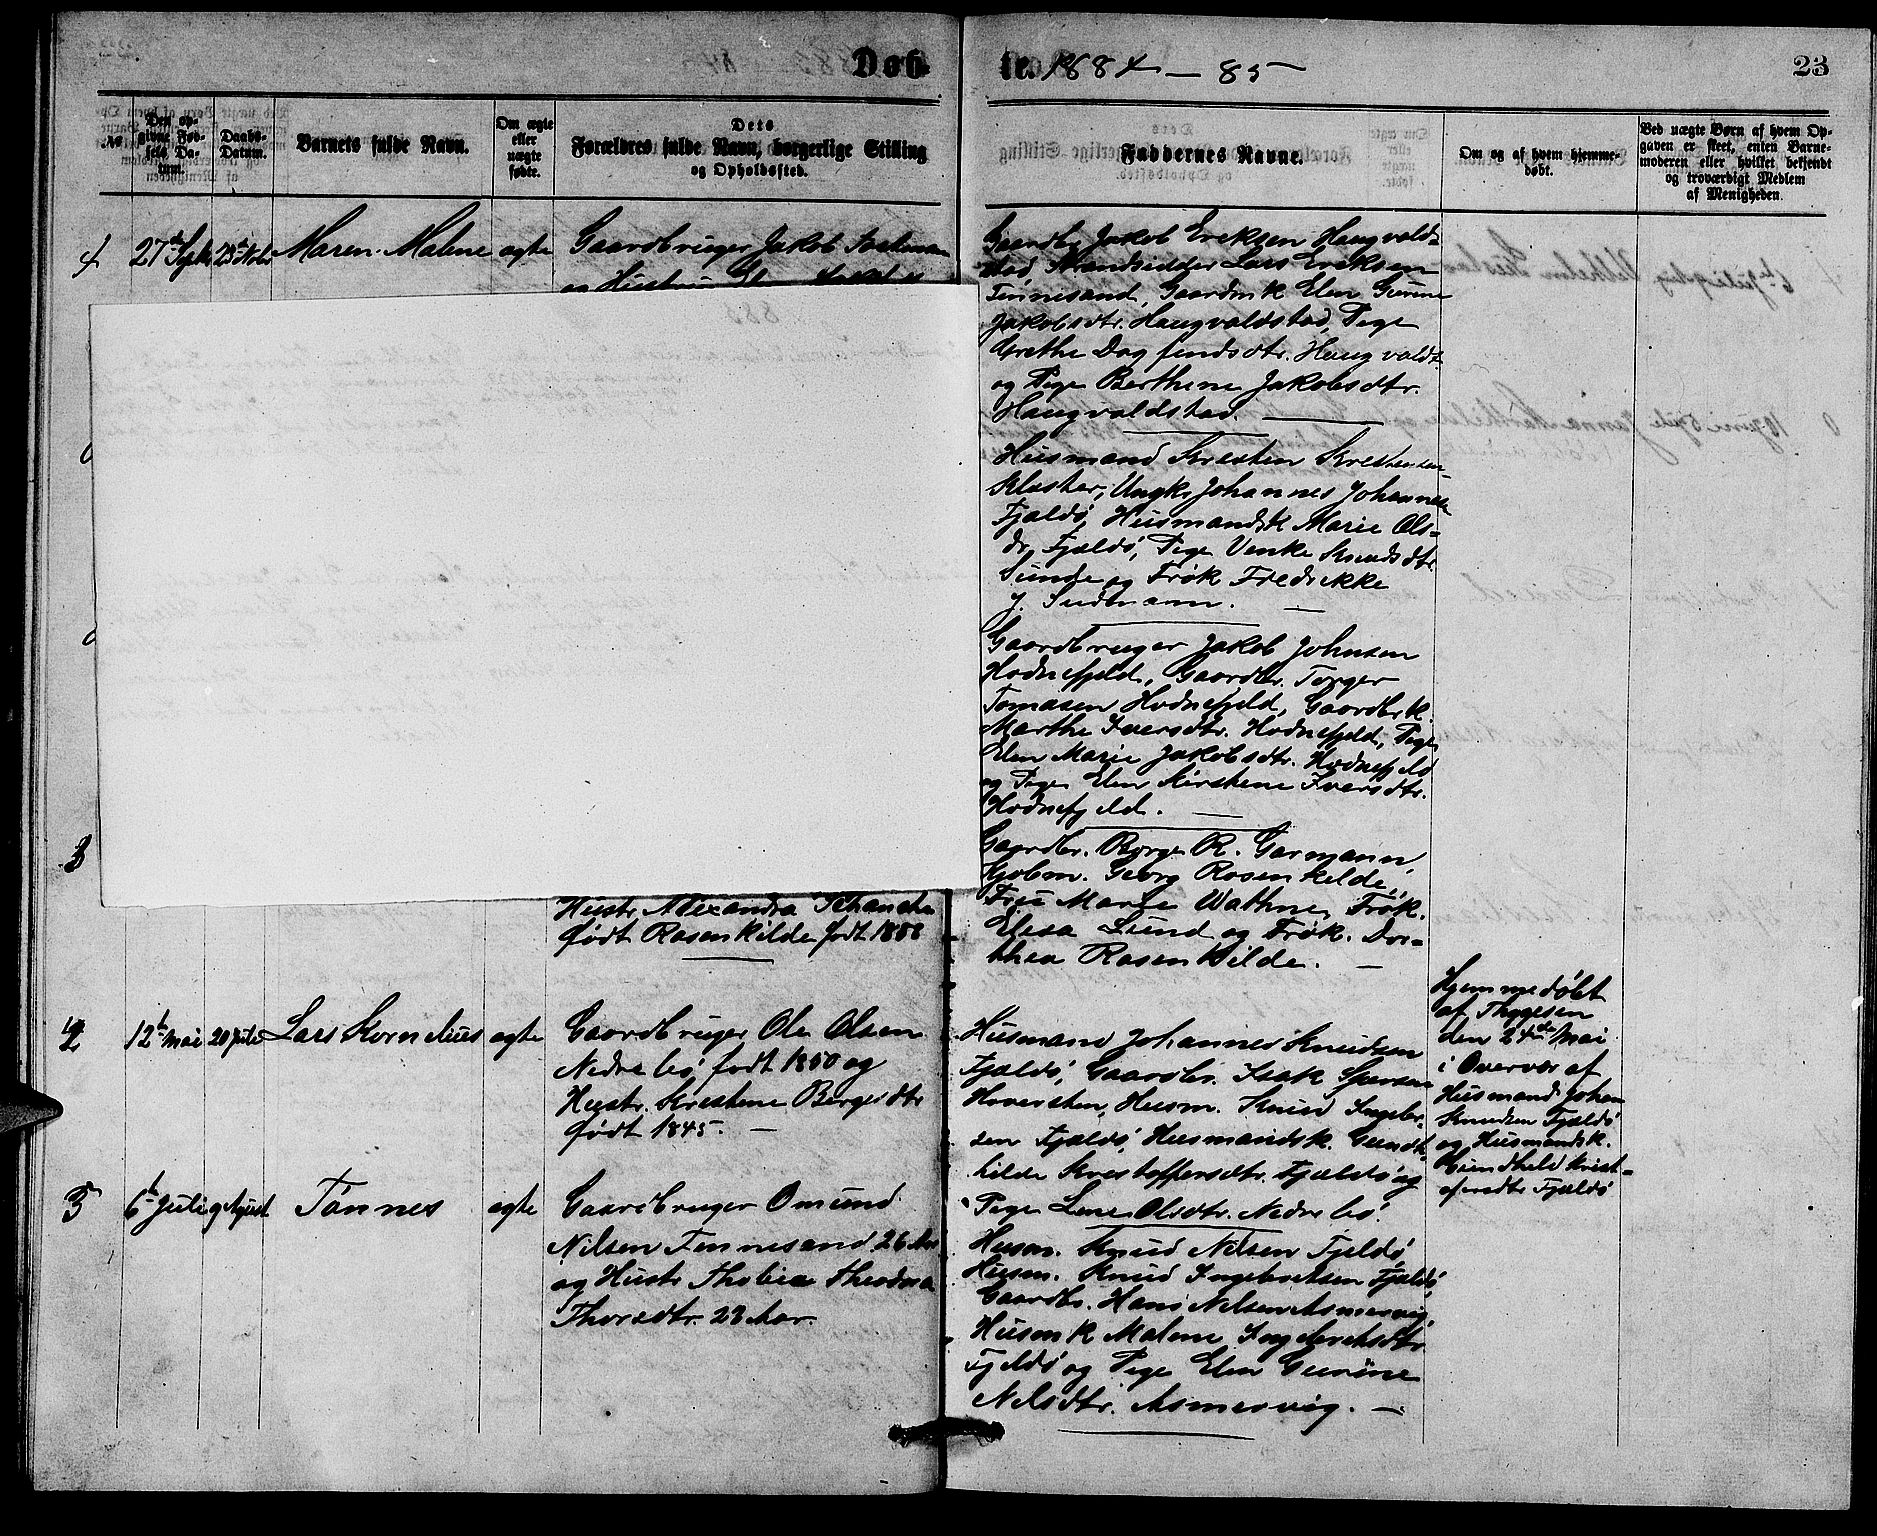 Døb
te. 1884 - 85
23
№
Den op-
givne Fød-
sels Da-
tum.
Daabs-
Datum.
Barnets fulde Navn.
Om ægte
eller
uægte
født.
Dets
Forældres fulde Navn, borgerlige Stilling
og Opholdssted.
Faddernes Navne.
Om og af hvem hjemme-
døbt.
Ved uægte Børn af hvem Op-
gaven er skeet, enten Barne-
moderen eller hvilket bekjendt
og troværdigt Medlem
af Menigheden.
4
27de Septbr
23de Novbr
Maren Malene
ægte
Gaardbruger Jakob
og Hustru
Gaardbr Jakob Eriksen Haugvald-
stad Strandsidder Lars Eriksen
Tennesand, Gaardmk Elen Gurine
Jakobsdtr. Haugvaldstad, Pige
Grethe Dagfindsdtr. Haugvaldt.
og Pige Berthine Jakobsdtr.
Haugvaldstad.
Husmand Kresten Krestensen
Kloster, Ungk. Johannes Johannesen
Fjeldø, Husmandsk Marie Ols-
dr. Fjældø, Pige Venke Knudsdtr.
Sunde og Frøk Fredrikke
J. Sudmann.
Gaardbruger Jakob Johnsen
Hodnefjeld, Gaardbr. Torger
Tomasen Hodnefjeld, Gaardbr.k.
Marthe Iversdtr. Hodnefjeld, Pige
Elen Marie Jakobsdtr. Hodnefjeld
og Pige Elen Kirstine Iversdtr.
Hodnefjeld.
3
Hustr. Alexandra Schanche
født Rosenkilde født 1858
Gaardbr. Børge R. Garmann,
Kjøbm. Georg Rosenkilde,
Fru Marie Wathne, Frøk.
Elisa Lund og Frøk. Dor-
thea Rosenkilde.
4
12te Mai
20 Juli
Lars Kornelius
ægte
Gaardbruger Ole Olsen
Nedrebø født 1850 og
Hustr. Kristine Børgesdtr
født 1845.
Husmand Johannes Knudsen
Fjældø, Gaardbr. Isak
Hoversten, Husm. Knud Ingebr-
sen Fjældø, Husmandsk. Gund-
hilde Kristoffersdtr. Fjældø og
Pige Lene Olsdtr. Nedrebø.
Hjemmedøbt
af Thygesen
den 24de Mai
i Overvær af
Husmand Johan
Knudsen Fjældø
og Husmandsk.
Gundhild Krist-
ofersdtr Fjældø
5
6te Juli
9 August
Tønnes
ægte
Gaardbruger Omund
Nilsen Tennesand 26 Aar
og Hustr Tholine Theodora
Thorsdtr. 23 Aar
Husm. Knud Nilsen Fjeldø,
Husm. Knud Ingebretsen Fjeldø,
Gaardbr. Hans Nilsen Asmervig,
Husmk Malene Ingebretsdtr
Fjeldø og Pige Elen Gurine
Nilsdtr. Asmervig.